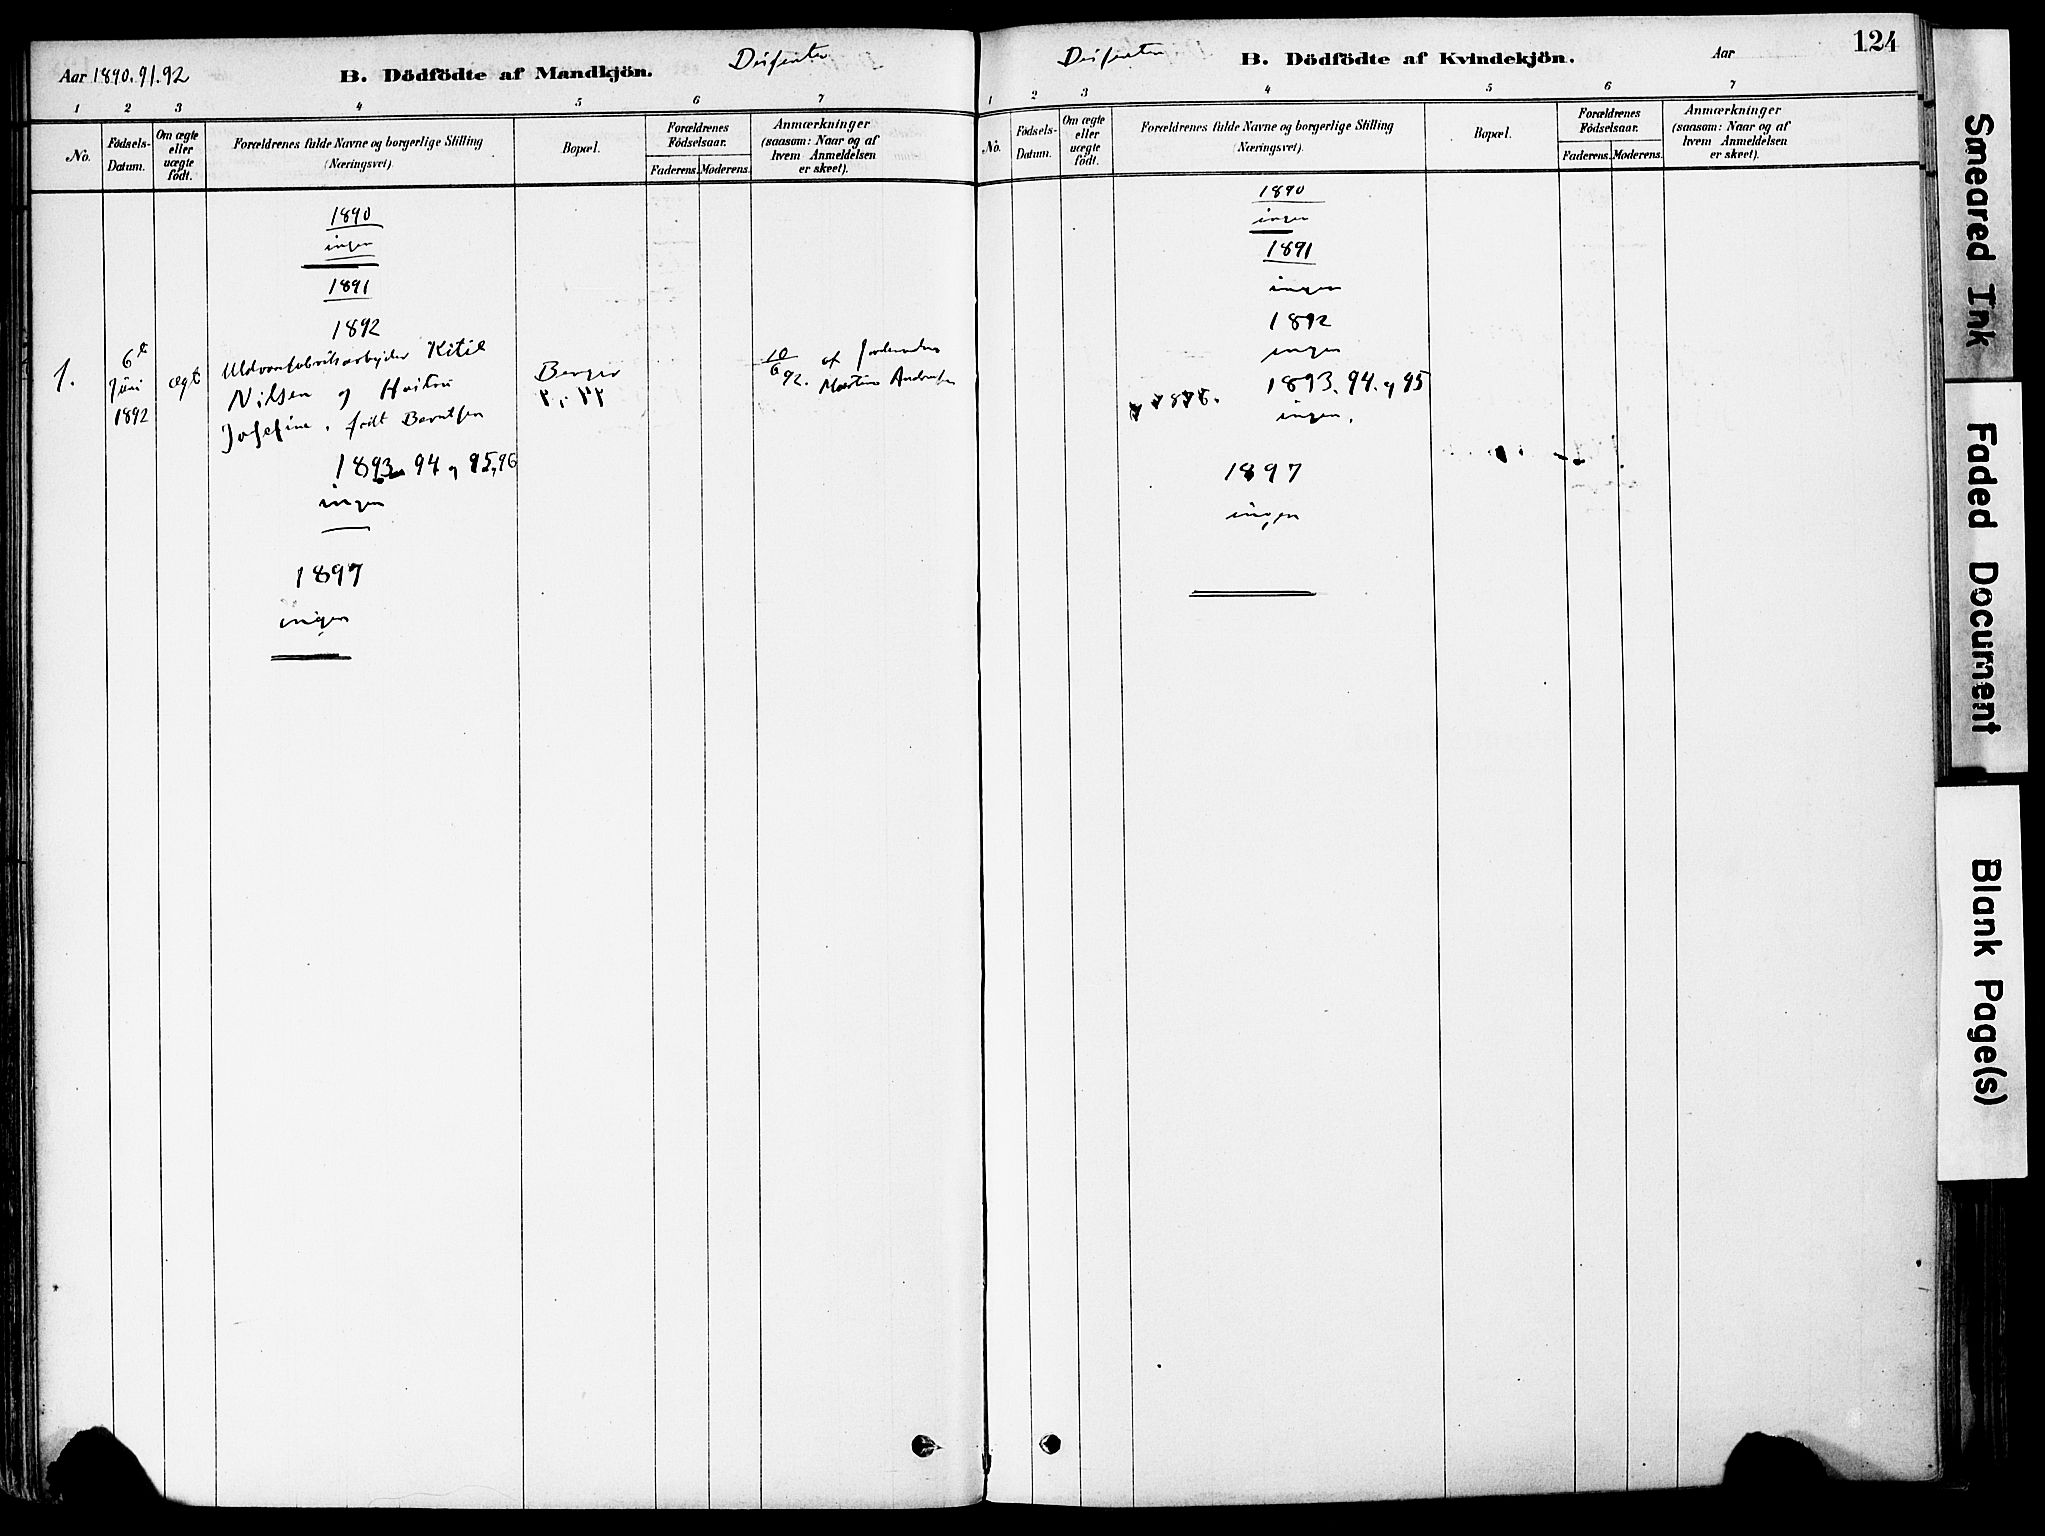 Aar 1890.91.92
B. Dödfödte af Mandkjön.
1 2 3 4 5 6 7
No.
Födsels-
Datum.
Om ægte
eller
uægte
födt.
Forældrenes fulde Navne og borgerlige Stilling
(Næringsvei).
Bopæl.
Forældrenes
Födselsaar.
Faderens. Moderens.
Anmærkninger
(saasom: Naar og af
hvem Anmeldelsen
er skeet).
1890
ingen
1891
1892
1.
6te
Juni
1892
ægt
Uldvarefabriksarbejder Kitil
Nilsen og
Josefine, født Berntsen
Berger
10/6 92. af
Martin Andersen
1893 94 og 95, 96
ingen
1897
ingen
B. Dödfödte af Kvindekjön.
Aar
124
1 2 3 4 5 6 7
No.
Födsels-
Datum.
Om ægte
eller
uægte
födt.
Forældrenes fulde Navne og borgerlige Stilling
(Næringsvei).
Bopæl.
Forældrenes
Födselsaar.
Faderens. Moderens.
Anmærkninger
(saasom: Naar og af
hvem Anmeldelsen
er skeet).
1890
ingen
1891
ingen
1892
ingen
1893. 94. og 95
ingen.
1897
ingen
Smeared Ink
Faded Document
Blank Page(s)